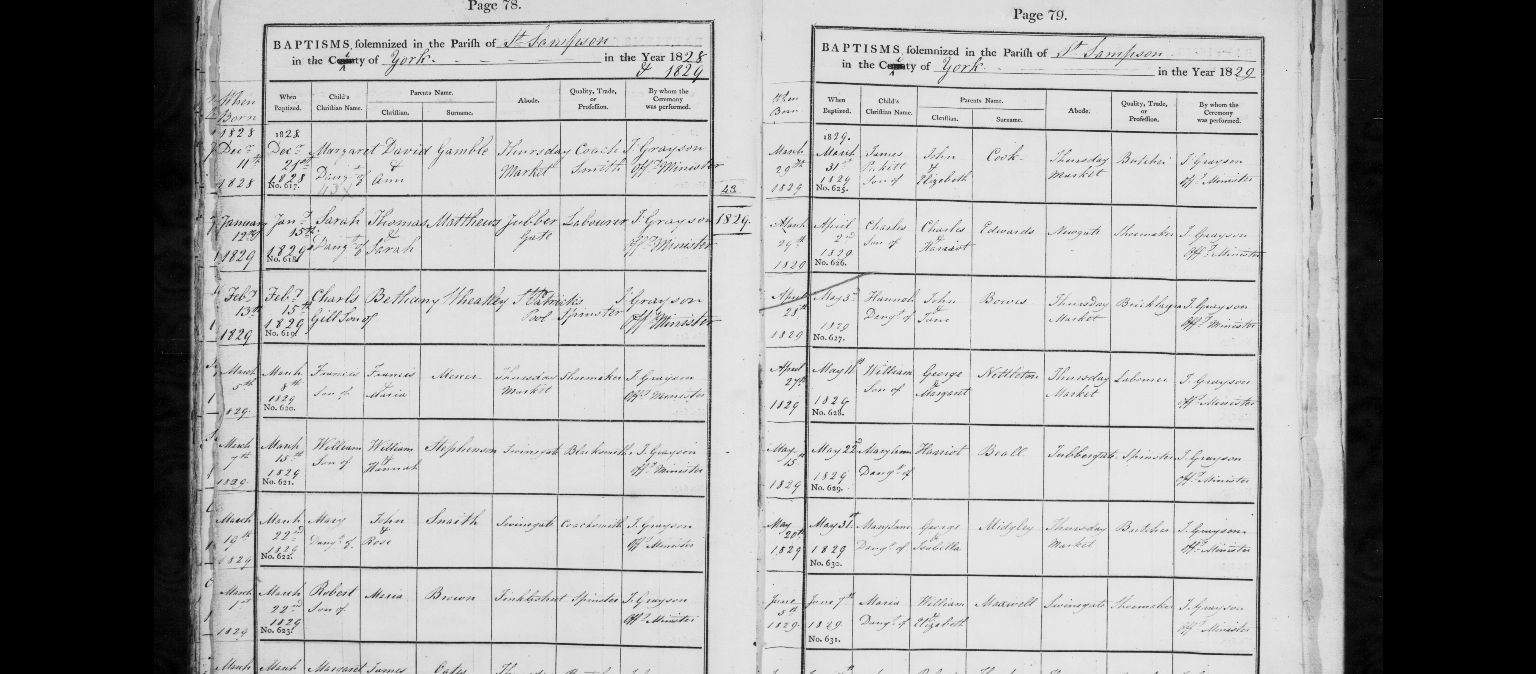 Page 78.
BAPTISMS, solemnized in the Parish of St. Sampson
in the City of York. in the Year 1828
& 1829
When Born
When Baptized.
Child's Christian Name.
Parents Name.
Christian.
Surname.
Abode.
Quality, Trade, or Profession.
By whom the Ceremony was performed.
1828 Decr. 11th 1828
1828 Decr. 21st 1828 No. 617.
Margaret Daugr. of
David & Ann
Gamble
Thursday Market
Coach Smith
J. Grayson Offg. Minister
January 12th 1829
Jany. 15th 1829 No. 618.
Sarah Daugr. of
Thomas & Sarah
Matthews
Jubber Gate
Labourer
J. Grayson Offg. Minister
Feby. 13th 1829
Feby. 15th 1829 No. 619.
Charls Gill Son of
Bethany
Wheatley
St. Patricks Pool
Spinster
J. Grayson Offg. Minister
March 5th 1829
March 8th 1829 No. 620.
Francis Son of
Francis & Maria
Mercer
Thursday Market
Shoemaker
J. Grayson Offg. Minister
March 7th 1829
March 15th 1829 No. 621.
William Son of
William & Hannah
Stephenson
Swinegate
Blacksmith
J. Grayson Offg. Minister
March 19th 1829
March 22nd 1829 No. 622.
Mary Daugr. of
John & Rose
Snaith
Swinegate
Coachsmith
J. Grayson Offg. Minister
March 1st 1829
March 22nd 1829 No. 623.
Robert Son of
Maria
Brown
Finklestreet
Spinster
J. Grayson Offg. Minister
March
March
Margaret
James
Oates
43
1829.
Page 79.
BAPTISMS, solemnized in the Parish of St. Sampson
in the City of York. in the Year 1829
When Born
When Baptized.
Child's Christian Name.
Parents Name.
Christian.
Surname.
Abode.
Quality, Trade, or Profession.
By whom the Ceremony was performed.
March 29th 1829
1829. March 31st 1829 No. 625.
James Son of
John & Elizabeth
Cook
Thursday Market
Butcher
J. Grayson Offg. Minister
March 29th 1829
April 2nd 1829 No. 626.
Charles Son of
Charles & Harriot
Edwards
Newgate
Shoemaker
J. Grayson Offg. Minister
April 28th 1829
May 3rd 1829 No. 627.
Hannah Daugr. of
John & Jane
Bowes
Thursday Market
Bricklayer
J. Grayson Offg. Minister
April 27th 1829
May 11th 1829 No. 628.
William Son of
George & Margaret
Nettleton
Thursday Market
Labourer
J. Grayson Offg. Minister
May 15th 1829
May 22nd 1829 No. 629.
Maryann Daugr. of
Harriot
Beall
Jubbergate
Spinster
J. Grayson Offg. Minister
May 20th 1829
May 31st 1829 No. 630.
MaryJane Daugr. of
George & Isabella
Midgley
Thursday Market
Butcher
J. Grayson Offg. Minister
June 5th 1829
June 7th 1829 No. 631.
Maria Daugr. of
William & Elizabeth
Maxwell
Swinegate
Shoemaker
J. Grayson Offg. Minister